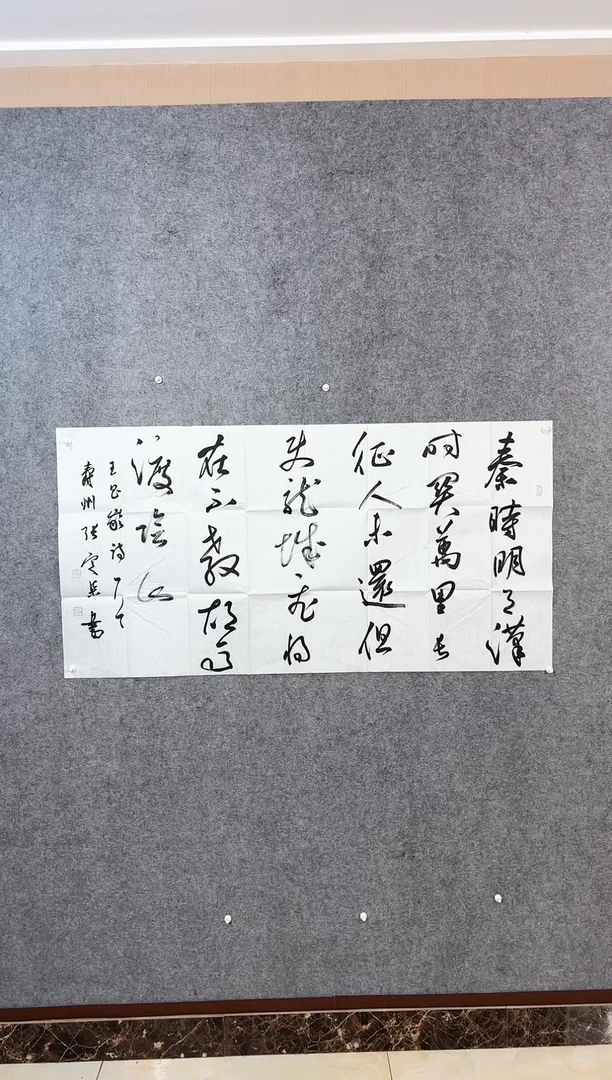 秦時明月漢
时關萬里長
征人未還但
使龍城飛將
在不教胡馬
渡陰山
王昌齡詩
壽州張定書